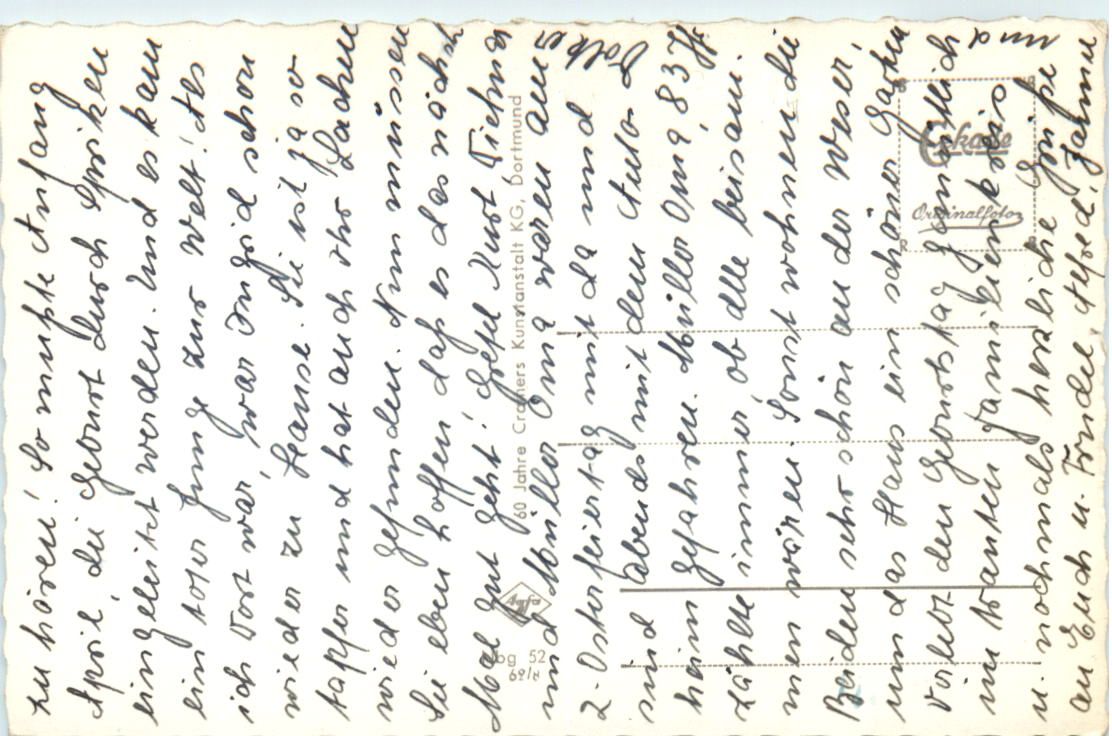 zu hören! So mußte Anfang
April, die Geburt durch Spritzen
eingeleitet werden. Und es kam
ein toter Junge zur Welt! Als
ich dort war, war Ingrid schon
wieder zu Hause. Sie ist ja so
tapfer und hat auch ihr Lachen
wieder gefunden. Nun müssen
Sie eben hoffen, daß es das nächste
Mal gut geht!
und Müller Oma waren am
2. Osterfeiertag mit da und
sind abends mit dem Auto
heim gefahren. Müller Oma, 83 J.
zählte immer, ob alle beisam-
men wären. Sonst wohnen die
Beiden sehr schön an der Weser,
ums das Haus ein schöner Garten
Verlebt den Geburtstag gemütlich
im trauten Familienkreis und
u. nochmals herzliche Grüße
an Euch u. Friedel, Alfred,
60 Jahre Cramers Kunstanstalt KG, Dortmund
Agfa
Cekade
Originalfoto